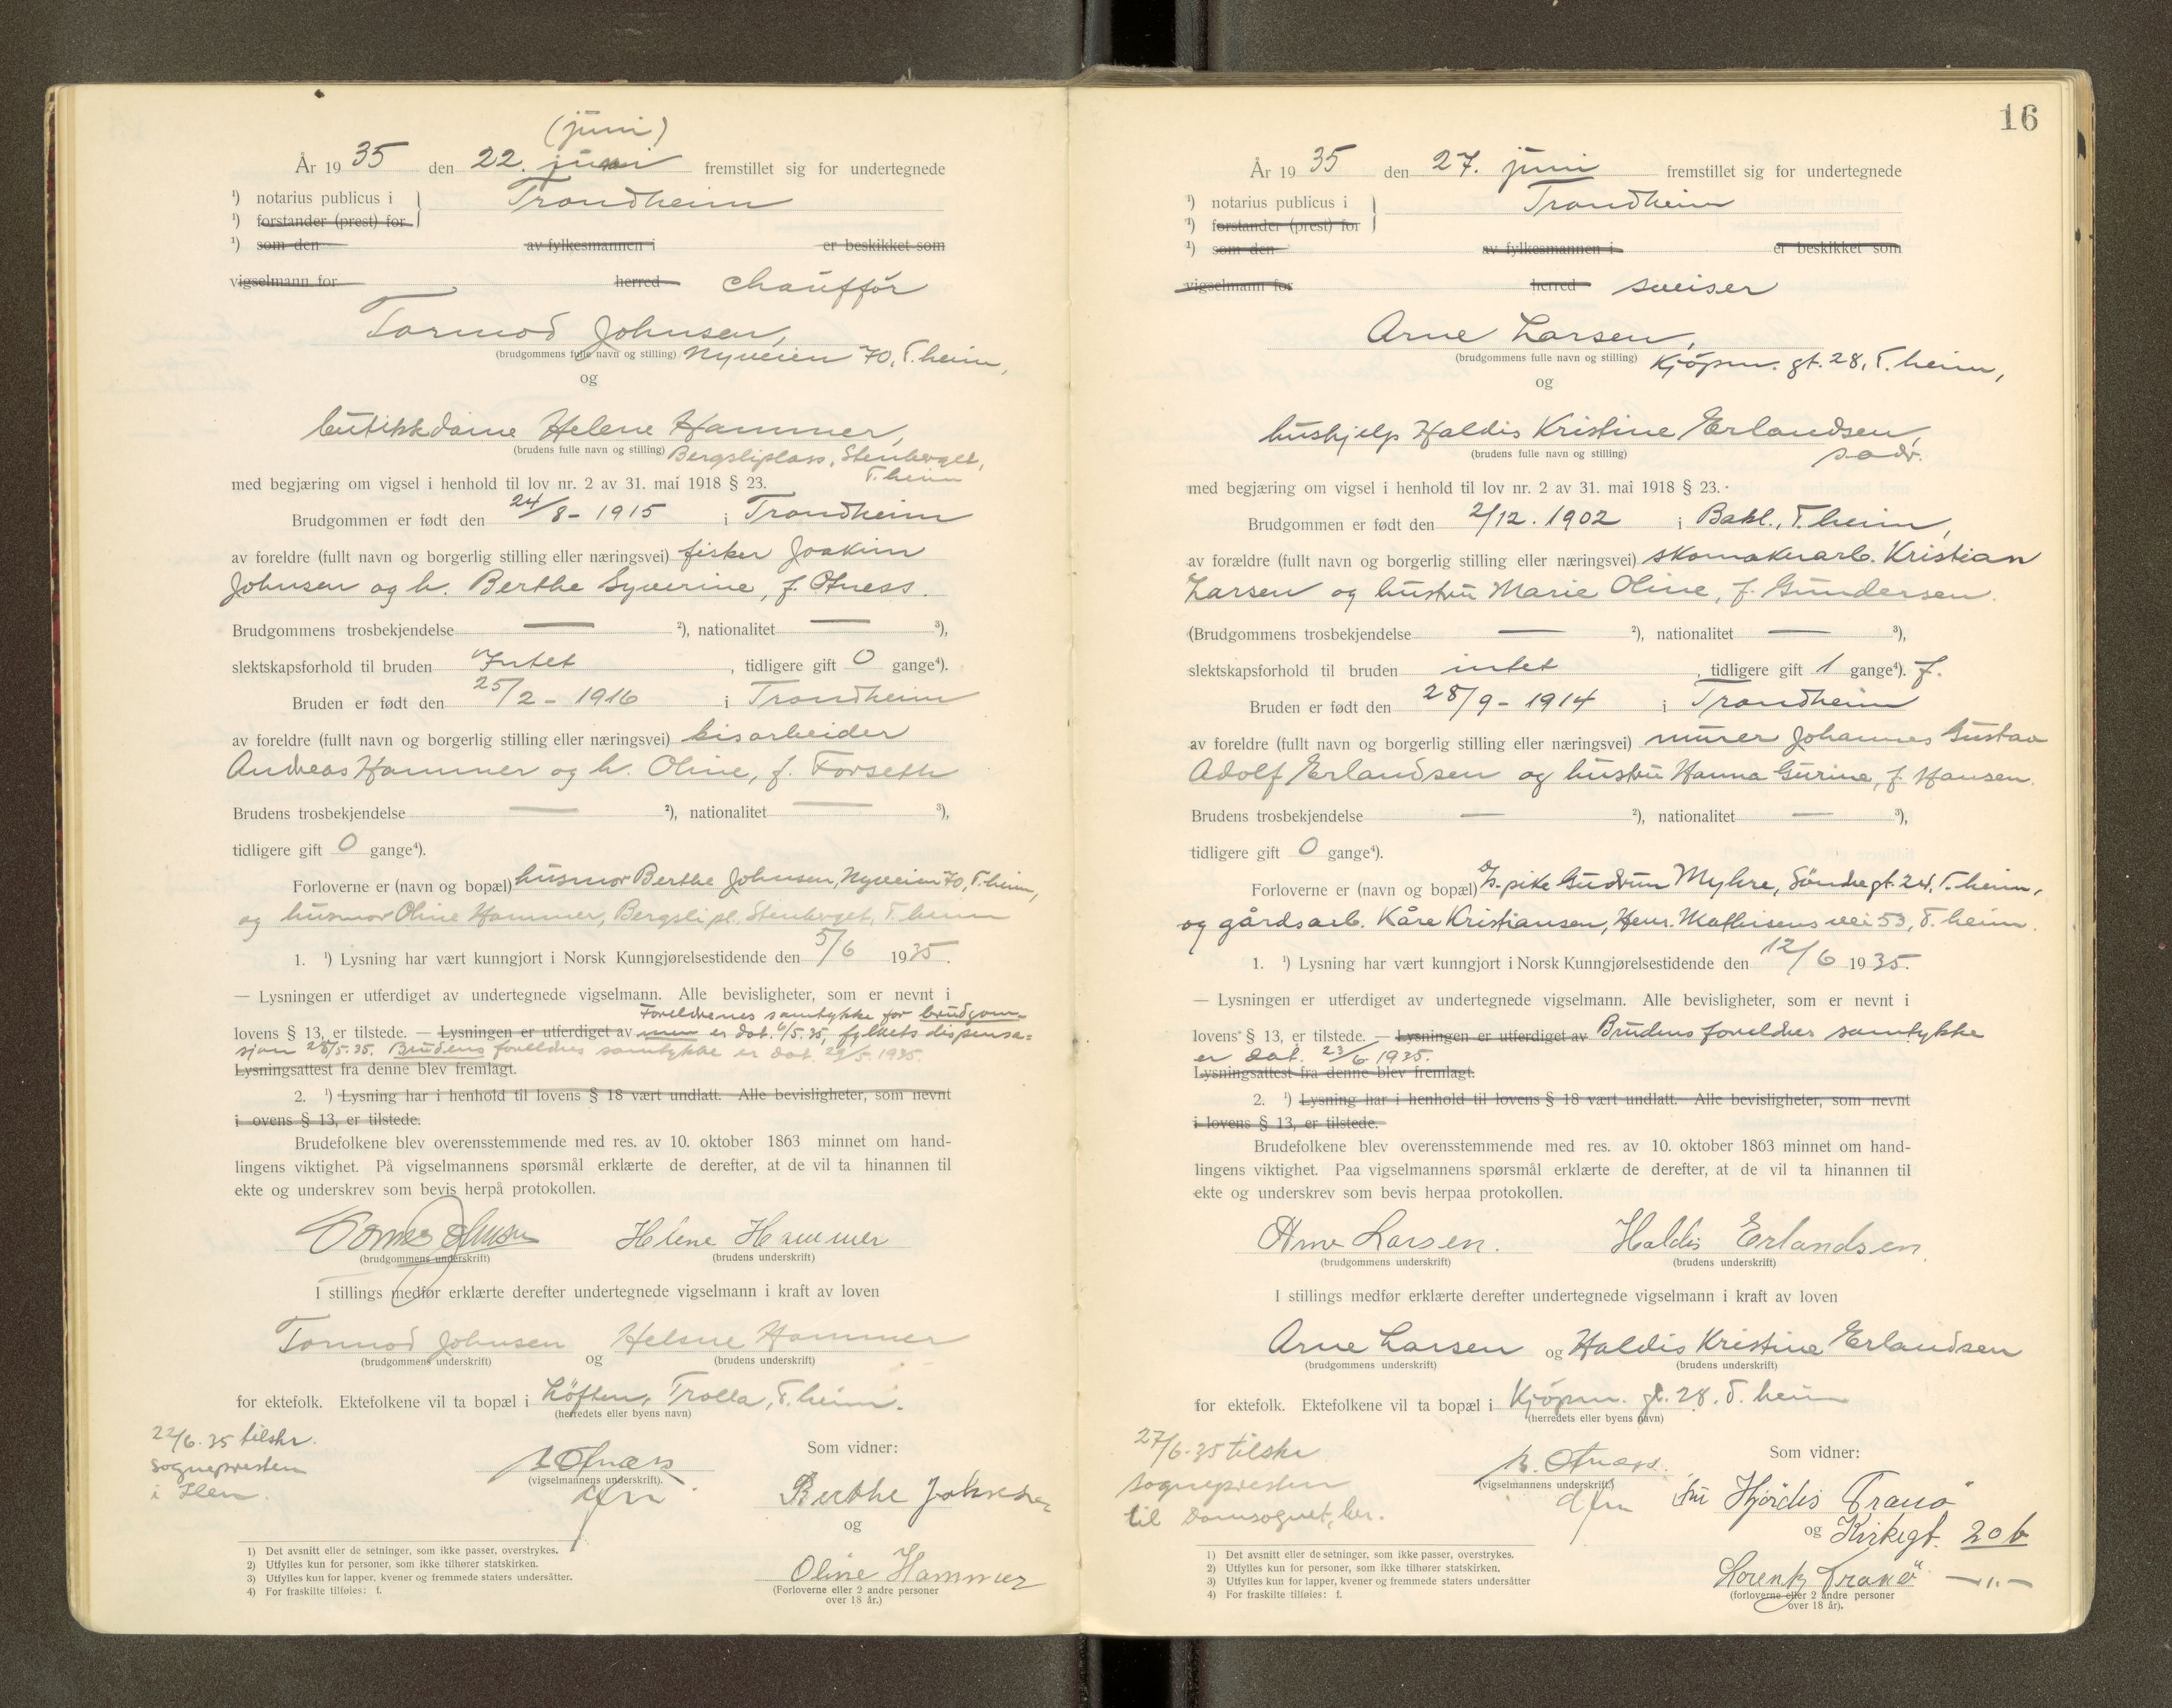 (juni)
År 1935 den 22. juni fremstillet sig for undertegnede
¹) notarius publicus i Trondheim
¹) forstander (prest) for
¹) som den av fylkesmannen i er beskikket som
vigselmann for herred chauffør
Tormod Johnsen,
(brudgommens fulle navn og stilling) Nyveien 70, T.heim,
og
butikkdame Helene Hammer,
(brudens fulle navn og stilling) Bergsliplass, Stenberget,
T.heim
med begjæring om vigsel i henhold til lov nr. 2 av 31. mai 1918 § 23.
Brudgommen er født den 24/8 - 1915 i Trondheim
av foreldre (fullt navn og borgerlig stilling eller næringsvei) fisker Joakim
Johnsen og h. Berthe Syverine, f. Otness.
Brudgommens trosbekjendelse — ²), nationalitet — ³),
slektskapsforhold til bruden Intet, tidligere gift 0 gange⁴).
Bruden er født den 25/2 - 1916 i Trondheim
av foreldre (fullt navn og borgerlig stilling eller næringsvei) kisarbeider
Andreas Hammer og h. Oline, f. Forseth
Brudens trosbekjendelse — ²), nationalitet — ³),
tidligere gift 0 gange⁴).
Forloverne er (navn og bopæl) husmor Berthe Johnsen, Nyveien 70, T.heim,
og husmor Oline Hammer, Bergsli pl. Stenberget, T.heim
1. ¹) Lysning har vært kunngjort i Norsk Kunngjørelsestidende den 5/6 1935.
— Lysningen er utferdiget av undertegnede vigselmann. Alle bevisligheter, som er nevnt i
Foreldrenes samtykke for brudgom-
lovens § 13, er tilstede. — Lysningen er utferdiget av men er dat. 6/5.35, fylkets dispensa-
sjon 28/5.35. Brudens foreldres samtykke er dat. 29/5.1935.
Lysningsattest fra denne blev fremlagt.
2. ¹) Lysning har i henhold til lovens § 18 vært undlatt. Alle bevisligheter, som nevnt
i ovens § 13, er tilstede.
Brudefolkene blev overensstemmende med res. av 10. oktober 1863 minnet om hand-
lingens viktighet. På vigselmannens spørsmål erklærte de derefter, at de vil ta hinannen til
ekte og underskrev som bevis herpå protokollen.
Tormod Johnsen Helene Hammer
(brudgommens underskrift) (brudens underskrift)
I stillings medfør erklærte derefter undertegnede vigselmann i kraft av loven
Tormod Johnsen og Helene Hammer
(brudgommens underskrift) (brudens underskrift)
for ektefolk. Ektefolkene vil ta bopæl i Løften, Trolla, T.heim.
(herredets eller byens navn)
22/6.35 tilskr.
sognepresten
i Ilen.
Otnæss
(vigselmannens underskrift).
dfm
Som vidner:
Berthe Johnsen
og
Oline Hammer
(Forloverne eller 2 andre personer
over 18 år.)
1) Det avsnitt eller de setninger, som ikke passer, overstrykes.
2) Utfylles kun for personer, som ikke tilhører statskirken.
3) Utfylles kun for lapper, kvener og fremmede staters undersåtter.
4) For fraskilte tilføies: f.
16
År 1935 den 27. juni fremstillet sig for undertegnede
¹) notarius publicus i Trondheim
¹) forstander (prest) for
¹) som den av fylkesmannen i er beskikket som
vigselmann for herred sveiser
Arne Larsen,
(brudgommens fulle navn og stilling) Kjøpm. gt. 28, T.heim,
og
hushjelp Haldis Kristine Erlandsen,
(brudens fulle navn og stilling) s. adr.
med begjæring om vigsel i henhold til lov nr. 2 av 31. mai 1918 § 23.
Brudgommen er født den 2/12. 1902 i Bakl., T.heim,
av forældre (fullt navn og borgerlig stilling eller næringsvei) skomakerarb. Kristian
Larsen og hustru Marie Oline, f. Gundersen.
(Brudgommens trosbekjendelse — ²), nationalitet — ³),
slektskapsforhold til bruden intet, tidligere gift 1 gange⁴). f.
Bruden er født den 28/9 - 1914 i Trondheim
av foreldre (fullt navn og borgerlig stilling eller næringsvei) murer Johannes Gustav
Adolf Erlandsen og hustru Hanna Gurine, f. Hansen.
Brudens trosbekjendelse — ²), nationalitet — ³),
tidligere gift 0 gange⁴).
Forloverne er (navn og bopæl) pike Gudrun Myhre, Søndre gt. 24, T.heim,
og gårdsarb. Kåre Kristiansen, Henr. Mathisens vei 53, T.heim.
1. ¹) Lysning har vært kunngjort i Norsk Kunngjørelsestidende den 12/6 1935.
— Lysningen er utferdiget av undertegnede vigselmann. Alle bevisligheter, som er nevnt i
lovens § 13, er tilstede. — Lysningen er utferdiget av Brudens foreldres samtykke
er dat. 23/6 1935.
Lysningsattest fra denne blev fremlagt.
2. ¹) Lysning har i henhold til lovens § 18 vært undlatt. Alle bevisligheter, som nevnt
i lovens § 13, er tilstede.
Brudefolkene blev overensstemmende med res. av 10. oktober 1863 minnet om hand-
lingens viktighet. Paa vigselmannens spørsmål erklærte de derefter, at de vil ta hinannen til
ekte og underskrev som bevis herpaa protokollen.
Arne Larsen. Haldis Erlandsen.
(brudgommens underskrift) (brudens underskrift)
I stillings medfør erklærte derefter undertegnede vigselmann i kraft av loven
Arne Larsen og Haldis Kristine Erlandsen
(brudgommens underskrift) (brudens underskrift)
for ektefolk. Ektefolkene vil ta bopæl i Kjøpm. gt. 28, T.heim
(herredets eller byens navn)
27/6.35 tilskr
sognepresten
til Domsognet, her.
Otnæss.
(vigselmannens underskrift.)
dfm
Som vidner:
fru Hjørdis Tranø
og Kirkegt. 20 b
Lorentz Tranø —"—
(forloverne eller 2 andre personer
over 18 år).
1) Det avsnitt eller de setninger, som ikke passer, overstrykes.
2) Utfylles kun for personer, som ikke tilhører statskirken.
3) Utfylles kun for lapper, kvener og fremmede staters undersåtter
4) For fraskilte tilføies: f.